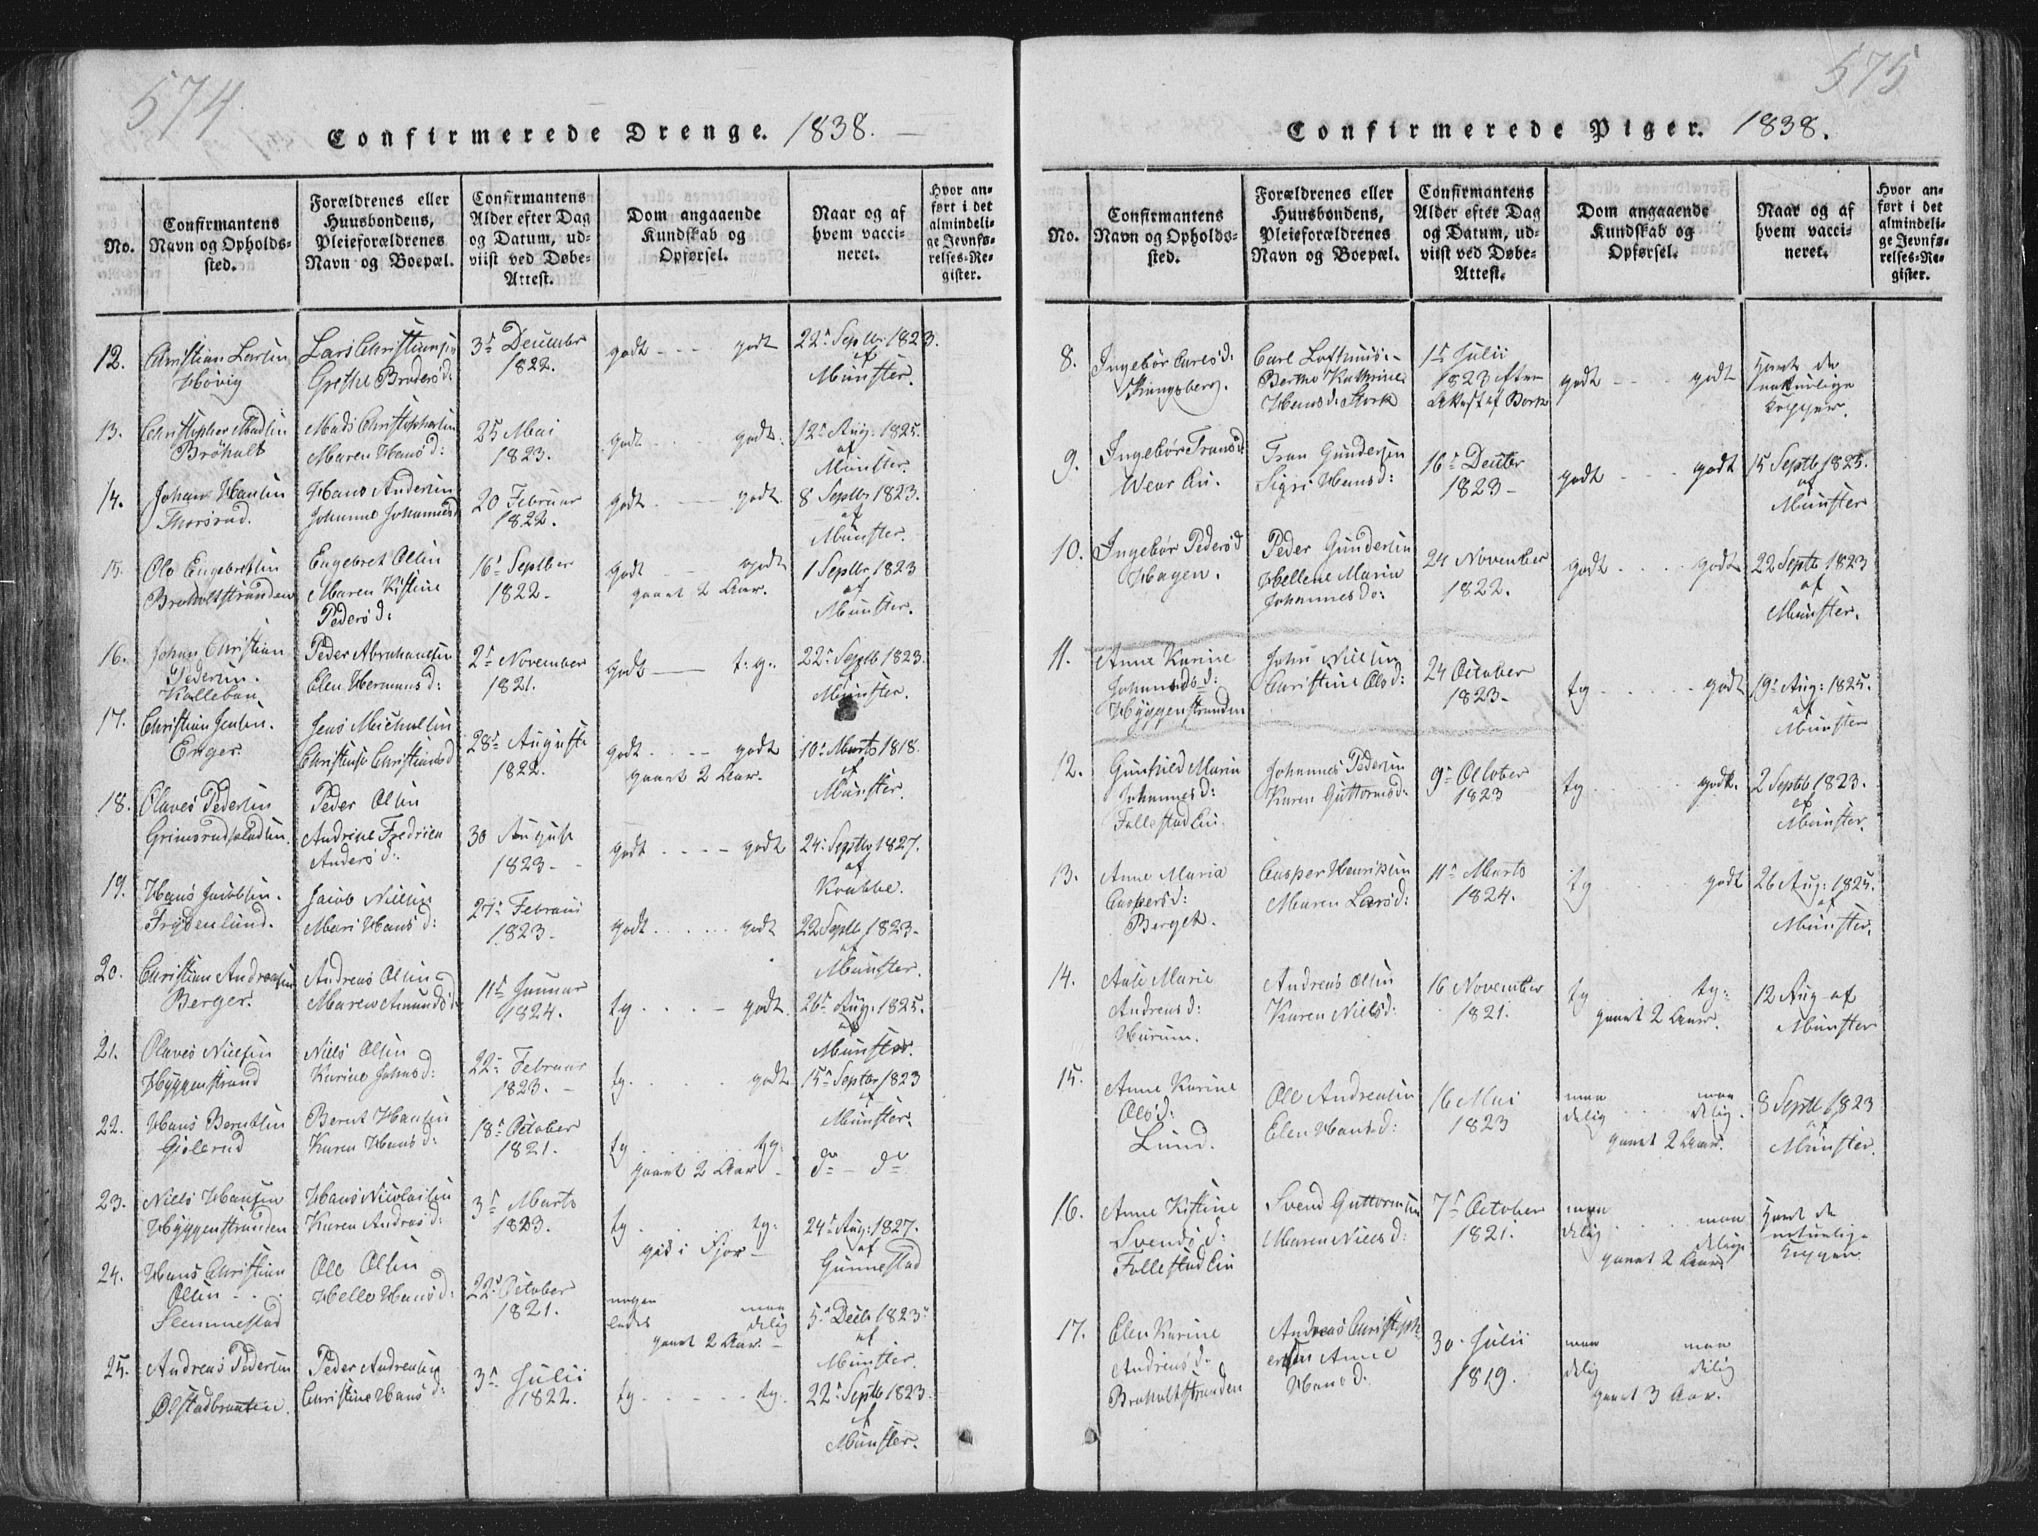 574
Confirmerede Drenge. 1838.
No.
Confirmantens
Navn og Opholds-
sted.
Forældrenes eller
Huusbondens,
Pleieforældrenes
Navn og Boepæl.
Confirmantens
Alder efter Dag
og Datum, ud-
viist ved Døbe-
Attest.
Dom angaaende
Kundskab og
Opførsel.
Naar og af
hvem vacci-
neret.
Hvor an-
ført i det
almindeli-
ge Jevnfø-
relses-Re-
gister.
12.
Christian Larsen
Høvig
Lars Christiansen
Grethe Bredersd:
3r December
1822.
godt - - - godt
22r Septbr 1823.
af
Münster.
13.
Christopher Madsen
Brøholt
Mads Christophersen
Maren Hansd:
25 Mai
1823.
godt . . . . godt.
12r Aug: 1825.
af
Münster.
14.
Johan Hansen
Thorsrud.
Hans Andersen
Johanne Johannesd
20 Februar
1822.
godt . . - - godt
8 Septbr 1823.
af
Münster.
15.
Ole Engebretsen
Braholtstranden
Engebret Olsen
Maren Kistine
Pedersd:
16r Septber
1822.
godt - - godt
gaaet 2 Aar.
1 Septbr 1823
af
Münster.
16.
Johan Christian
Pedersen.
Peder Abrahamsen
Elen Hermansd:
2r November
1821.
godt —— t. g.
22r Septb 1823.
af
Münster.
17.
Christian Jensen.
Enger.
Jens Michelsen
Christense Christiansd
28r Auguste
1822.
godt . . . - - godt
gaaet 2 Aar.
10r Marts 1818.
af
Münster.
18.
Olaves Pedersen
Peder Olsen
Andrine Fredrica
Andersd:
30 August
1823 -
godt . - - - godt
24r Septbr 1827.
af
Krabbe.
19.
Hans Jacobsen.
Frydenlund.
Jacob Nielsen
Mari Hansd:
27r Februar
1823.
godt . . . . . godt
22 Septb 1823.
af
Münster.
20.
Christian Andreasen
Berger.
Andreas Olsen
Maren Amundsd:
11r Januar
1824.
tg . . . - godt.
26r Aug: 1825.
af
Münster.
21.
Olaves Nielsen
Hyggenstrand
Niels Olsen
Karine Johnsd:
22r Februar
1823. -
tg. . . . . godt
15r Septbr 1823
af
Münster.
22.
Hans Berntsen
Gjelerud
Bernt Hansen
Karen Hansd:
18r October
1821.
tg . . . . . tg:
gaaet 2 Aar -
do - do
23.
Niels Hansen
Hyggenstranden
Hans Nicolaisen
Karen Andrasd:
3r Marts
1823.
tg . . . . . tg:
gik i Fjor -
24r Aug: 1827.
af
Gunnestad
24.
Hans Christian
Olsen - . .
Slemmestad
Ole Olsen
Helle Hansd:
22r October
1821.
nogen
ledes
maa
delig
gaaet 2 Aar. -
5r Decbr 1823.
af
Münster.
25.
Andreas Pedersen
Ølstadbraaten.
Peder Andreasen
Christine Hansd:
3r Julii
1822.
tg - . - - . . tg.
22r Septb 1823.
af
Münster.
575
Confirmerede Piger. 1838.
No.
Confirmantens
Navn og Opholds-
sted.
Forældrenes eller
Huusbondens,
Pleieforældrenes
Navn og Boepæl.
Confirmantens
Alder efter Dag
og Datum, ud-
viist ved Døbe-
Attest.
Dom angaaende
Kundskab og
Opførsel.
Naar og af
hvem vacci-
neret.
Hvor an-
ført i det
almindeli-
ge Jevnfø-
relses-Re-
gister.
8.
Ingebør Carlsd:
Kongsberg.
Carl
Berthe Kathrine
Hansd: Stork
1r Julii
1823 efter
Attest af Bork
godt - . - . godt
Havt de
naturlige
Kopper.
9.
Ingebør Fransd:
Fran Gundersen
Sigri Hansd:
16r Decbr
1823 -
godt - . . - godt
15 Septb 1825.
af
Münster
10.
Ingebør Pedersd
Hagen.
Peder Gundersen
Hellene Maria
Johannesd:
24 November
1822.
godt . . . . godt
22 Septb 1823
af
Münster.
11.
Anne Karine
Johannesd:
Hyggenstranden
John Nielsen
Christine Olsd:
24 October
1823.
tg . . . . . godt
19r Aug: 1825.
af
Münster
12.
Gunhild Maria
Johannesd:
Follestad Ei.
Johannes Pedersen
Karen Guttormsd:
9r October
1823
tg . . . . . godt.
2 Septb 1823.
af
Münster.
13.
Anne Maria
Caspersd:
Berget.
Casper Henriksen
Maren Larsd:
11r Marts
1824.
tg . . . . . godt
26 Aug: 1825.
af
Münster.
14.
Anne Marie
Andreasd:
Hurum.
Andreas Olsen
Karen Nielsd:
16 November
1821.
tg . . . . . tg:
gaaet 2 Aar.
12 Aug af
Münster
15.
Anne Karine
Olsd:
Lund.
Ole Andreasen
Elen Hansd:
16 Mai
1823
maa
delig
maa
delig.
gaaet 2 Aar.
8 Septb 1823
af
Münster.
16.
Anne Kistine
Svendsd:
Follestad Ei
Svend Guttormsen
Maren Nielsd:
7r October
1821.
maa
delig
maa
delig.
gaaet 2 Aar.
Havt de
naturlige
Kopper
17.
Elen Karine
Andreasd.
Braholtstranden
Andreas Christoph
ersen Anne
Hansd.
30. Julii
1819.
maa
delig
maa
delig
gaaet 3 Aar.